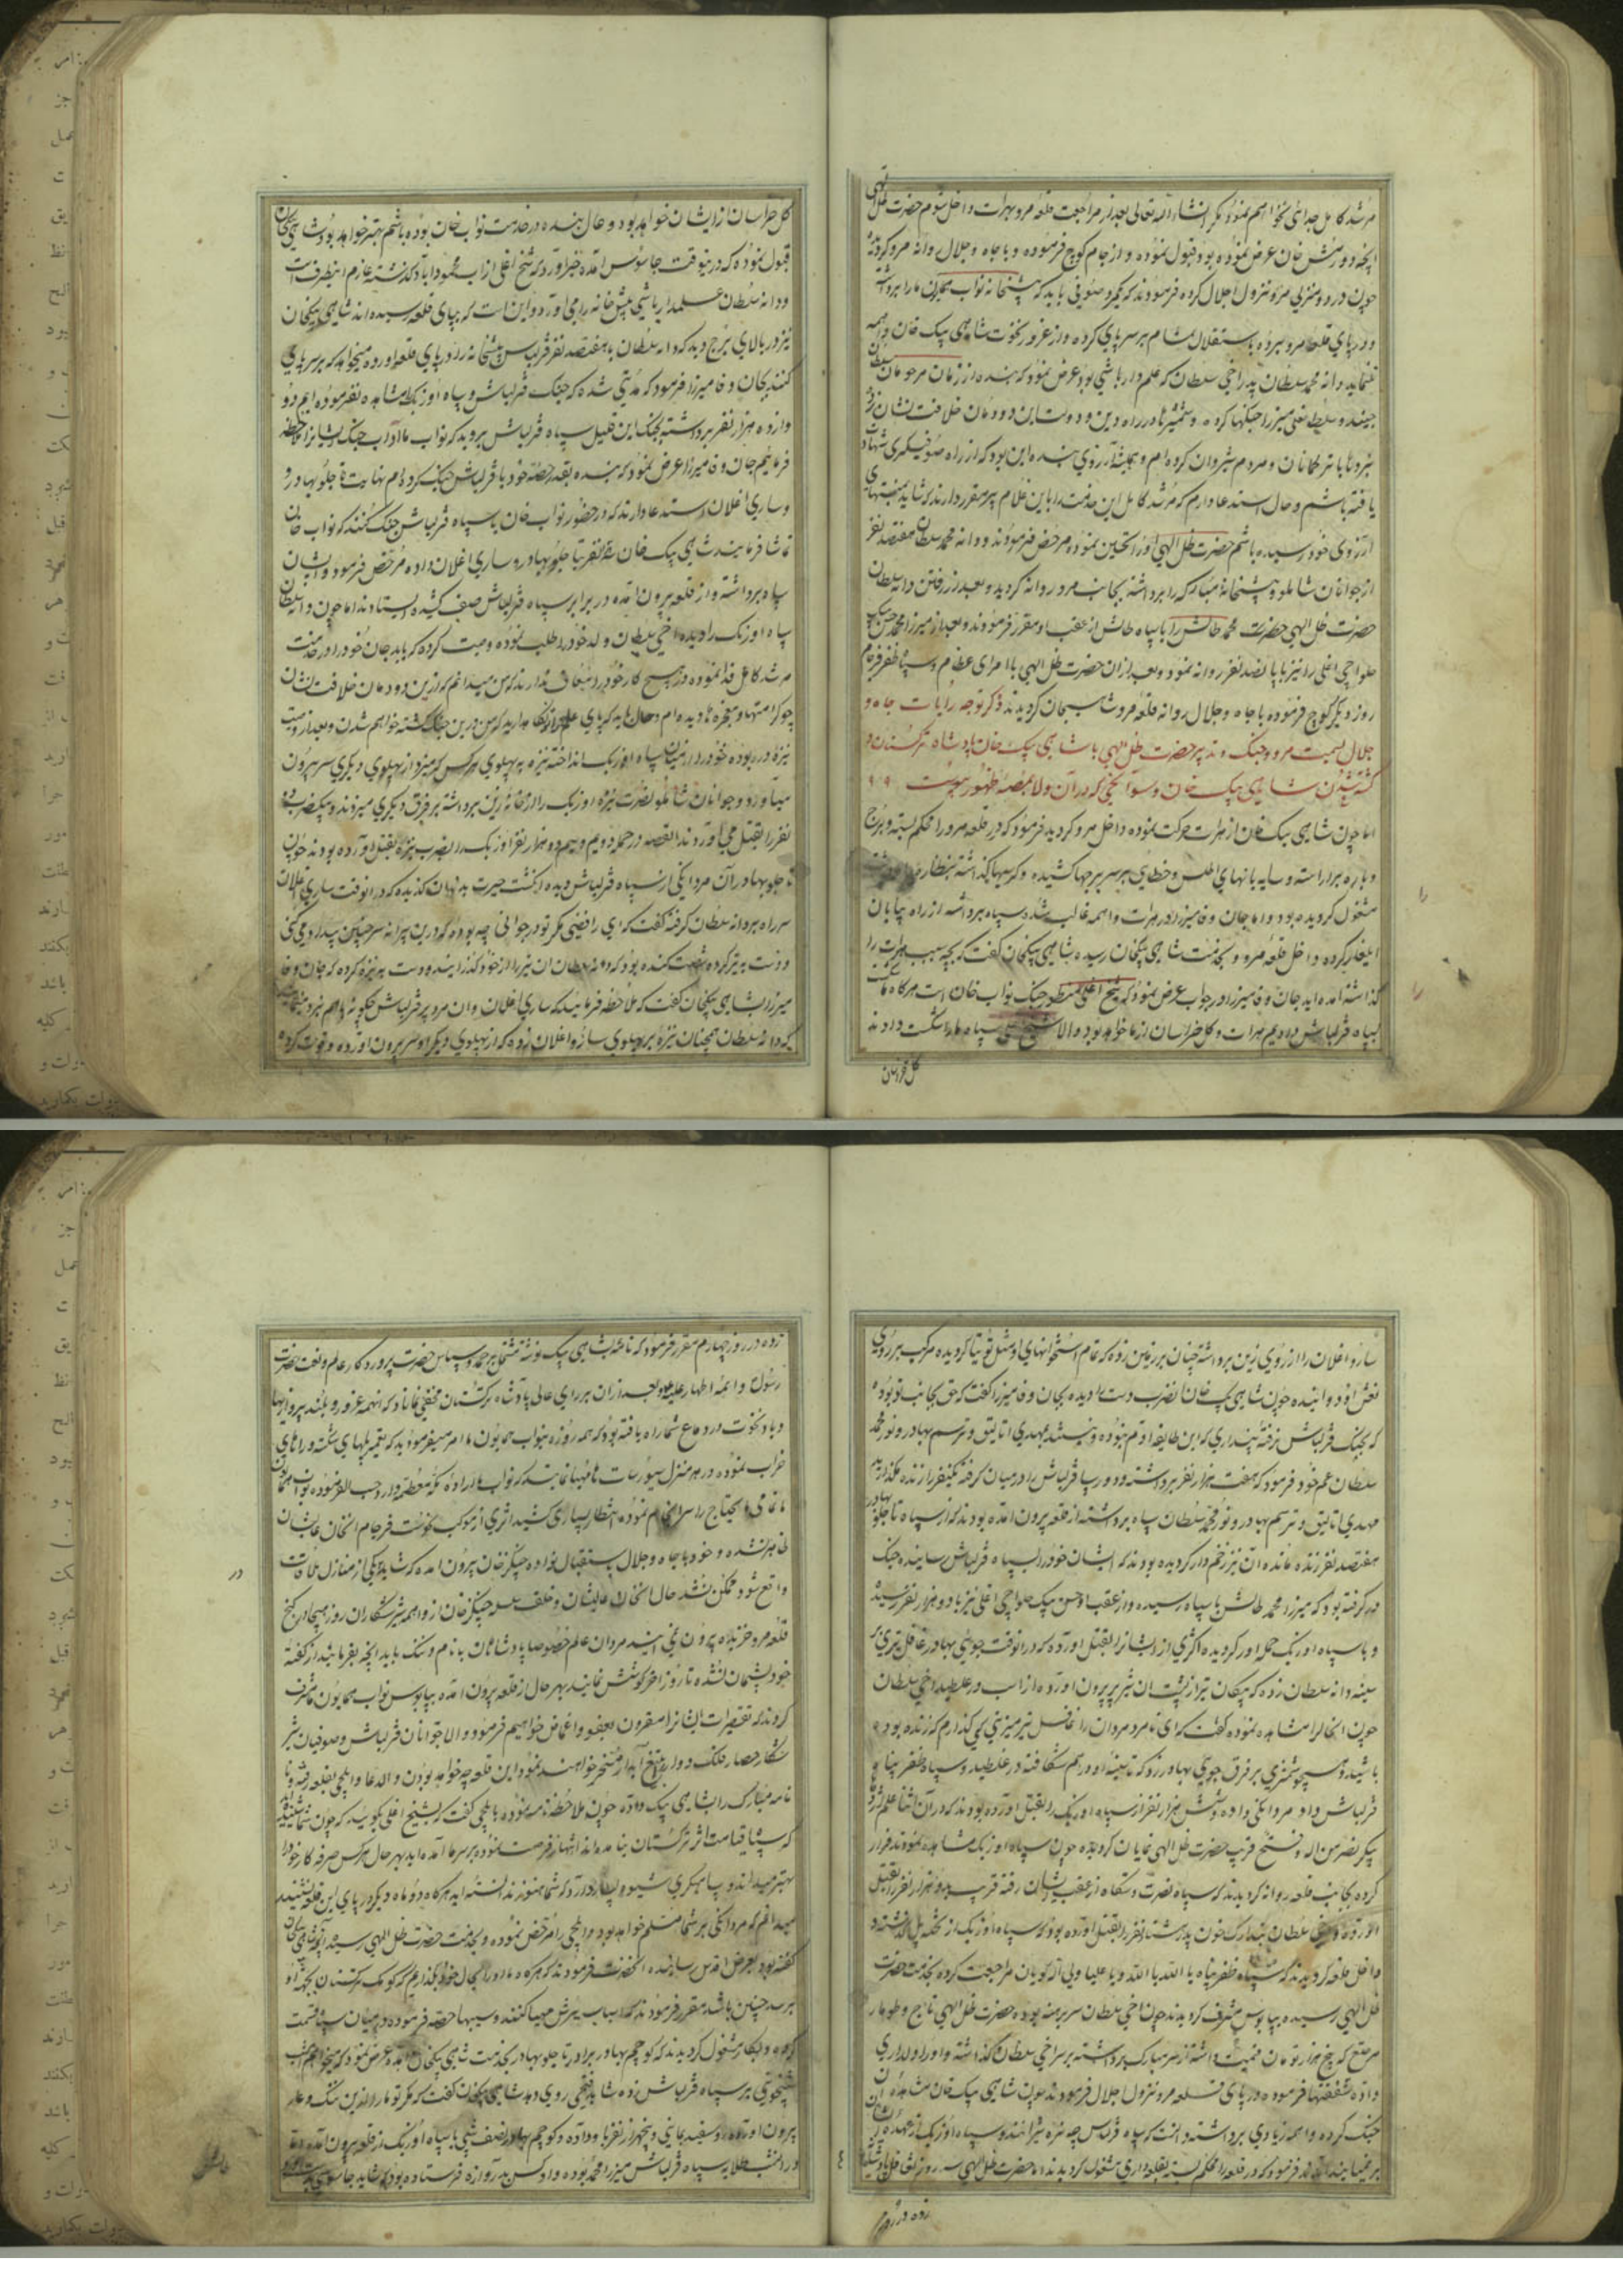 مرشد کامل جدائی نخواهم نمود دیگر انشاء الله تعالی بعد از مراجعت قلعه مرو بهرات داخل شوم حضرت ظل الهی
آنچه دورمش خان عرض نموده بود قبول نموده و از جام کوچ فرموده و با جاه و جلال روانه مرو کردیده
چون در دو منزلی مرو نزول اجلال کرده فرمودند که یکمرد صوفی باید که پیشخانه نواب همایون ما را برداشته
و در پای قلعه مرو برده باستقلال تمام بر سر پای کرده و از غرور نخوت شاهی بیک خان واهمه
ننماید دانه محمد سلطان پدر اخی سلطان که علم دار باشی بود عرض نمود که بنده از زمان مرحومان سلطان
جنید و سلطانعلی میرزا جنکها کرده و شمشیرها در راه دین و دولت این دودمان خلافت نشان زده
نبردها با ترکمانان و مردم شیروان کرده ام و همیشه آرزوی بنده این بود که از راه صوفیکری شهادت
یافته باشم و حال استدعا دارم که مرشد کامل این خدمت را باین غلام پیر مقرر دارند که شاید بمنتهای
آرزوی خود رسیده باشم حضرت ظل الهی او را تحسین نموده مرخص فرمودند و دانه محمد سلطان هفتصد نفر
از جوانان شاملو و پیشخانه مبارکه را برداشته بجانب مرو روانه کردید و بعد از رفتن دانه سلطان
حضرت ظل الهی حضرت محمد طالش را با سپاه طالش از عقب او مقرر فرمودند و بعد از میرزا محمد حسن بیک
حلواچی اغلی را نیز با پانصد نفر روانه نمود و بعد از آن حضرت ظل الهی با امرای عظام و سپاه ظفر فرجام
روز دیگر کوچ فرموده با جاه و جلال روانه قلعه مرو شاهیجان کردیدند ذکر توجه رایات جاه و
جلال بسمت مرو و جنگ حضرت ظل الهی با شاهی بیک خان پادشاه ترکستان و
کشته شدن شاهی بیک خان و سوانحی که در آن ولا بمنصه ظهور پیوست ٩٠٩
اما چون شاهی بیک خان از هرات حرکت نموده داخل مرو کردید فرمود که در قلعه مرو را محکم بسته و برج
و باره را آراسته و سایه بانهای اطلس و خطایی بر سر برجها کشیده و کرسیها کذاشته بنظاره
مشغول کردیده بود و اما جان وفا میرزا در هرات واهمه غالب شد و سپاه برداشته از راه بیابان
ایلغار کرده داخل قلعه مرو و بخدمت شاهی بیکخان رسیده شاهی بیکخان کفت که بچه سبب هرات را
کذاشته آمده اید جان وفا میرزا در جواب عرض نمود که شیخ اغلی منظور جنک نواب خان است هرکاه شکست
بسپاه قزلباش دادیم هرات و کل خراسان از ما خواهد بود و الا شیخ سپاه ما را شکست دادند
کل خراسان
کل خراسان از ایشان خواهد بود و حال بنده در خدمت نواب خان بوده باشم بهتر خواهد بود شاهی بیکخان
قبول نموده که درینوقت جاسوس آمده خبر آورد که شیخ اغلی از آب محمودآباد کذشته عازم اینطرفست
و دانه سلطان علمدار باشی پیش خانه را می آورد و اینست که بپای قلعه رسیده اند شاهی بیکخان
نیز در بالای برج دید که دانه سلطان با هفتصد نفر قزلباش پیشخانه را در پای قلعه آورده میخواهد که بر سر پای
کند بجان وفا میرزا فرمود که مدتی شده که جنک قزلباش و سپاه اوزبک را مشاهده نفرموده ایم دو
وازده هزار نفر برداشته بجنک این قلیل سپاه قزلباش بروید که نواب ما آداب جنک ایشانرا ملاحظه
فرمائیم جان وفا میرزا عرض نمود که بنده بقدر حصه خود با قزلباش جنک کرده ام نهایت تاجلو بهادر
و ساری اغلان استدعا دارند که در حضور نواب خان با سپاه قزلباش جنک کنند که نواب خان
تماشا فرمایند شاهی بیک خان نفر بتاجلو بهادر و ساری اغلان داده مرخص فرمود و ایشان
سپاه برداشته و از قلعه بیرون آمده در برابر سپاه قزلباش صف کشیده ایستادند اما چون دانه سلطان
سپاه اوزبک را دیده اخی سلطان ولد خود را طلب نموده وصیت کرده که باید جان خود را در خدمت
مرشد کامل فدا نموده و هیچ کار خود را معاف ندارند که من میدانم که ازین دودمان خلافت نشان
چه کرامتها و معجزه ها دیده ام و حال باید که پای علم را نکاه دارید که من درین جنک کشته خواهم شدن و بعد از وصیت
نیزه در ربوده خود را در میان سپاه اوزبک انداخته نیزه به پهلوی هرکس که میزد از پهلوی دیگری سر بیرون
میآورد و جوانان شاملو بضرب نیزه اوزبک را از خانه زین برداشته بر فرق دیگری میزدند و بیکضرب دو
نفر را بقتل می آوردند القصه در حمله دویم و سیم دو هزار نفر اوزبک را بضرب نیزه بقتل آورده بودند چون
تاجلو بهادر آن مردانکی از سپاه قزلباش دیده انکشت حیرت بدندان کزیده که در آنوقت ساری اغلان
سر راه بر دانه سلطان کرفته کفت که ای رافضی مگر تو در جوانی چه بوده که درین پیرانه سر چنین بیداد می کنی
میرزا شاهی بیکخان کفت که ملاحظه فرمایید که ساری اغلان و آن مرد پیر قزلباش چکونه باهم نبرد
که دانه سلطان همچنان نیزه بر پهلوی سارو اغلان زده که از پهلوی دیگر او سر بیرون آورده و قوت کرده
سارو اغلان را از روی زین برداشته چنان بر زمین زده که تمام استخوانهای او مثل توتیا کردیده مرکب بر روی
نعش او دوانیده چون شاهی بیک خان آن ضرب دست را دیده بجان وفا میرزا کفت که حق بجانب تو بوده
که بجنک قزلباش نرفته پنداری که این طایفه آدم نبوده و نیستند بمهدی اتالیق و ترسم بهادر و نور محمد
سلطان عم خود فرمود که هفت هزار نفر برداشته و دور سپاه قزلباش را در میان کرفته یکنفر را زنده مکذارید
مهدی اتالیق و ترسم بهادر و نور محمد سلطان سپاه برداشته از قلعه بیرون آمده بودند که از سپاه تاجلو بهادر
هفتصد نفر زنده مانده آن نیز زخم دار کردیده بودند که ایشان خود را بسپاه قزلباش رسانیده جنک
در کرفته بود که میرزا محمد طالش با سپاه رسیده و از عقب او حسن بیک حلواچی اغلی نیز با دو هزار نفر رسیده
و با سپاه اوزبک حمله آور کردیده اکثری از ایشانرا بقتل آورده که در آنوقت جوبی بهادر غافل تیری بر
سینه دانه سلطان زده که پیکان تیر از پشت آن شیر پیر بیرون آورده از اسب درغلطید اخی سلطان
چون انحال را مشاهده نموده کفت که ای نامرد مردان را غافل تیر میزنی کی کذارم که زنده بوده
باشید و همچو شمشیری بر فرق جوبی بهادر زد که تا سینه او درهم شکافته درغلطید و سپاه ظفر پناه
قزلباش داد مردانکی داده و شش هزار نفر از سپاه اوزبک را بقتل آورده بودند که در آن اثنا علم اژدها
پیکر نصر من الله و فتح قریب حضرت ظل الهی نمایان کردیده چون سپاه اوزبک مشاهده نمودند فرار
کرده بجانب قلعه روانه کردیدند که سپاه نصرت دستگاه از عقب ایشان رفته قریب بدو هزار نفر را بقتل
آورده و اخی سلطان بتدارک خون پدر هشتاد نفر را بقتل آورده بود که سپاه اوزبک از تخته پل کذشته و
داخل قلعه کردیدند که سپاه ظفر پناه یا الله یا الله و یا علی یا ولی الله کویان مراجعت کرده بخدمت حضرت
ظل الهی رسیده بپابوس مشرف کردیدند چون اخی سلطان سر برهنه بوده حضرت ظل الهی تاج و طومار
مرصع که پنج هزار تومان قیمت داشته از سر مبارک برداشته بر سر اخی سلطان کذاشته و او را دلداری
داده شفقتها فرموده در پای قلعه مرو نزول اجلال فرمودند چون شاهی بیک خان مشاهده آن
جنک کرده واهمه زیادی برداشته دانست که سپاه قزلباش چه نره شیرانند و سپاه اوزبک از عهده ایشان
بر نمیایند فرمود که در قلعه را محکم بسته بقلعه داری مشغول کردیدند اما حضرت ظل الهی سه روز
زده در روز
زده در روز چهارم مقرر فرمود که نامه بشاهی بیک نوشته مشتملبر حمد و سپاس حضرت پروردکار عالم و نعت حضرت
رسول و ائمه اطهار علیهم و بعد از آن بر رای عالی پادشاه ترکستان مخفی نماناد که اینهمه غرور و بلند پروازیها
و باد نخوت در دماغ شما راه یافته بود که همه روزه بنواب همایون ما امر میفرمودید که تعمیر پلهای شکسته و راههای
خراب نموده در هر منزل سیورسات ما مهیا نمایند که نواب ما اراده مکه معظمه دارد حسب الفرموده نواب همایون
ما تمامی مایحتاج را سرانجام نموده انتظار بسیاری کشید اثری از موکب نخوست فرجام آنخان عالیشان
ظاهر نشده و خود با جاه و جلال باستقبال نواده چنگیز خان بیرون آمده که شاید در یکی از منازل ملاقات
واقع شود ممکن نشد حال آنخان عالیشان و خلف سلسله چنگیز خان از واهمه شیر شکاران روز هیجا در کنج
قلعه مرو خزیده بیرون نمی آیند مردان عالم خصوصا پادشاهان با نام و ننک باید آنچه بفرمایند از کفته
خود پشیمان نشده تا روز آخر کوشش نمایند بهر حال از قلعه بیرون آمده بپابوس نواب همایون ما مشرف
کردند که تقصیرات ایشانرا مقرون بعفو و اغماض خواهیم فرمود و الا جوانان قزلباش و صوفیان شیر
شکار حصار فلک دوار را بتیغ آبدار مسخر خواهند نمود این قلعه چه خواهد بودن والدعا و ایلچی بقلعه رفته و
نامه مبارک را بشاهی بیک داده چون ملاحظه نامه نموده بایلچی کفت که بشیخ اغلی بکویید که چون شما شنیده اید
که سپاه قیامت اثر ترکستان نیامده اند انتهاز فرصت نموده بر سر ما آمده اید بهر حال هرکس صرفه کار خود را
بهتر میداند و سپاهیگری شیوه بسیار دارد که شما هنوز ندانسته اید هرکاه دو ماه دیگر در پای این قلعه نشستید
میدانم که مردانکی بر شما مسلم خواهد بود و ایلچی را مرخص نموده و بخدمت حضرت ظل الهی رسیده آنچه شاهی بیکخان
کفته بود بعرض اقدس رسانیده آنحضرت فرمودند که هرکاه ما او را بحال خود بکذاریم که کومک ترکستان بجهت او
برسد چنین باشد مقرر فرمودند که اسباب یورش مهیا کنند و سیبها حصه فرموده در میان سپاه قسمت
کرده و بکار مشغول کردیدند که کوچم بهادر برادر تاجلو بهادر بخدمت شاهی بیکخان آمده عرض نمود که میخواهم امشب
شبیخونی بر سپاه قزلباش زده شاید فتحی روی دهد شاهی بیکخان کفت که مگر تو ما را ازین ننک و عار
بیرون آورده و سفید نمایی و پنجهزار نفر باو داده و کوچم بهادر نصف شبی با سپاه اوزبک از قلعه بیرون آمده
در آنشب طلایه سپاه قزلباش میرزا محمد بوده و او کس بدروازه فرستاده بود که شاید جاسوسی